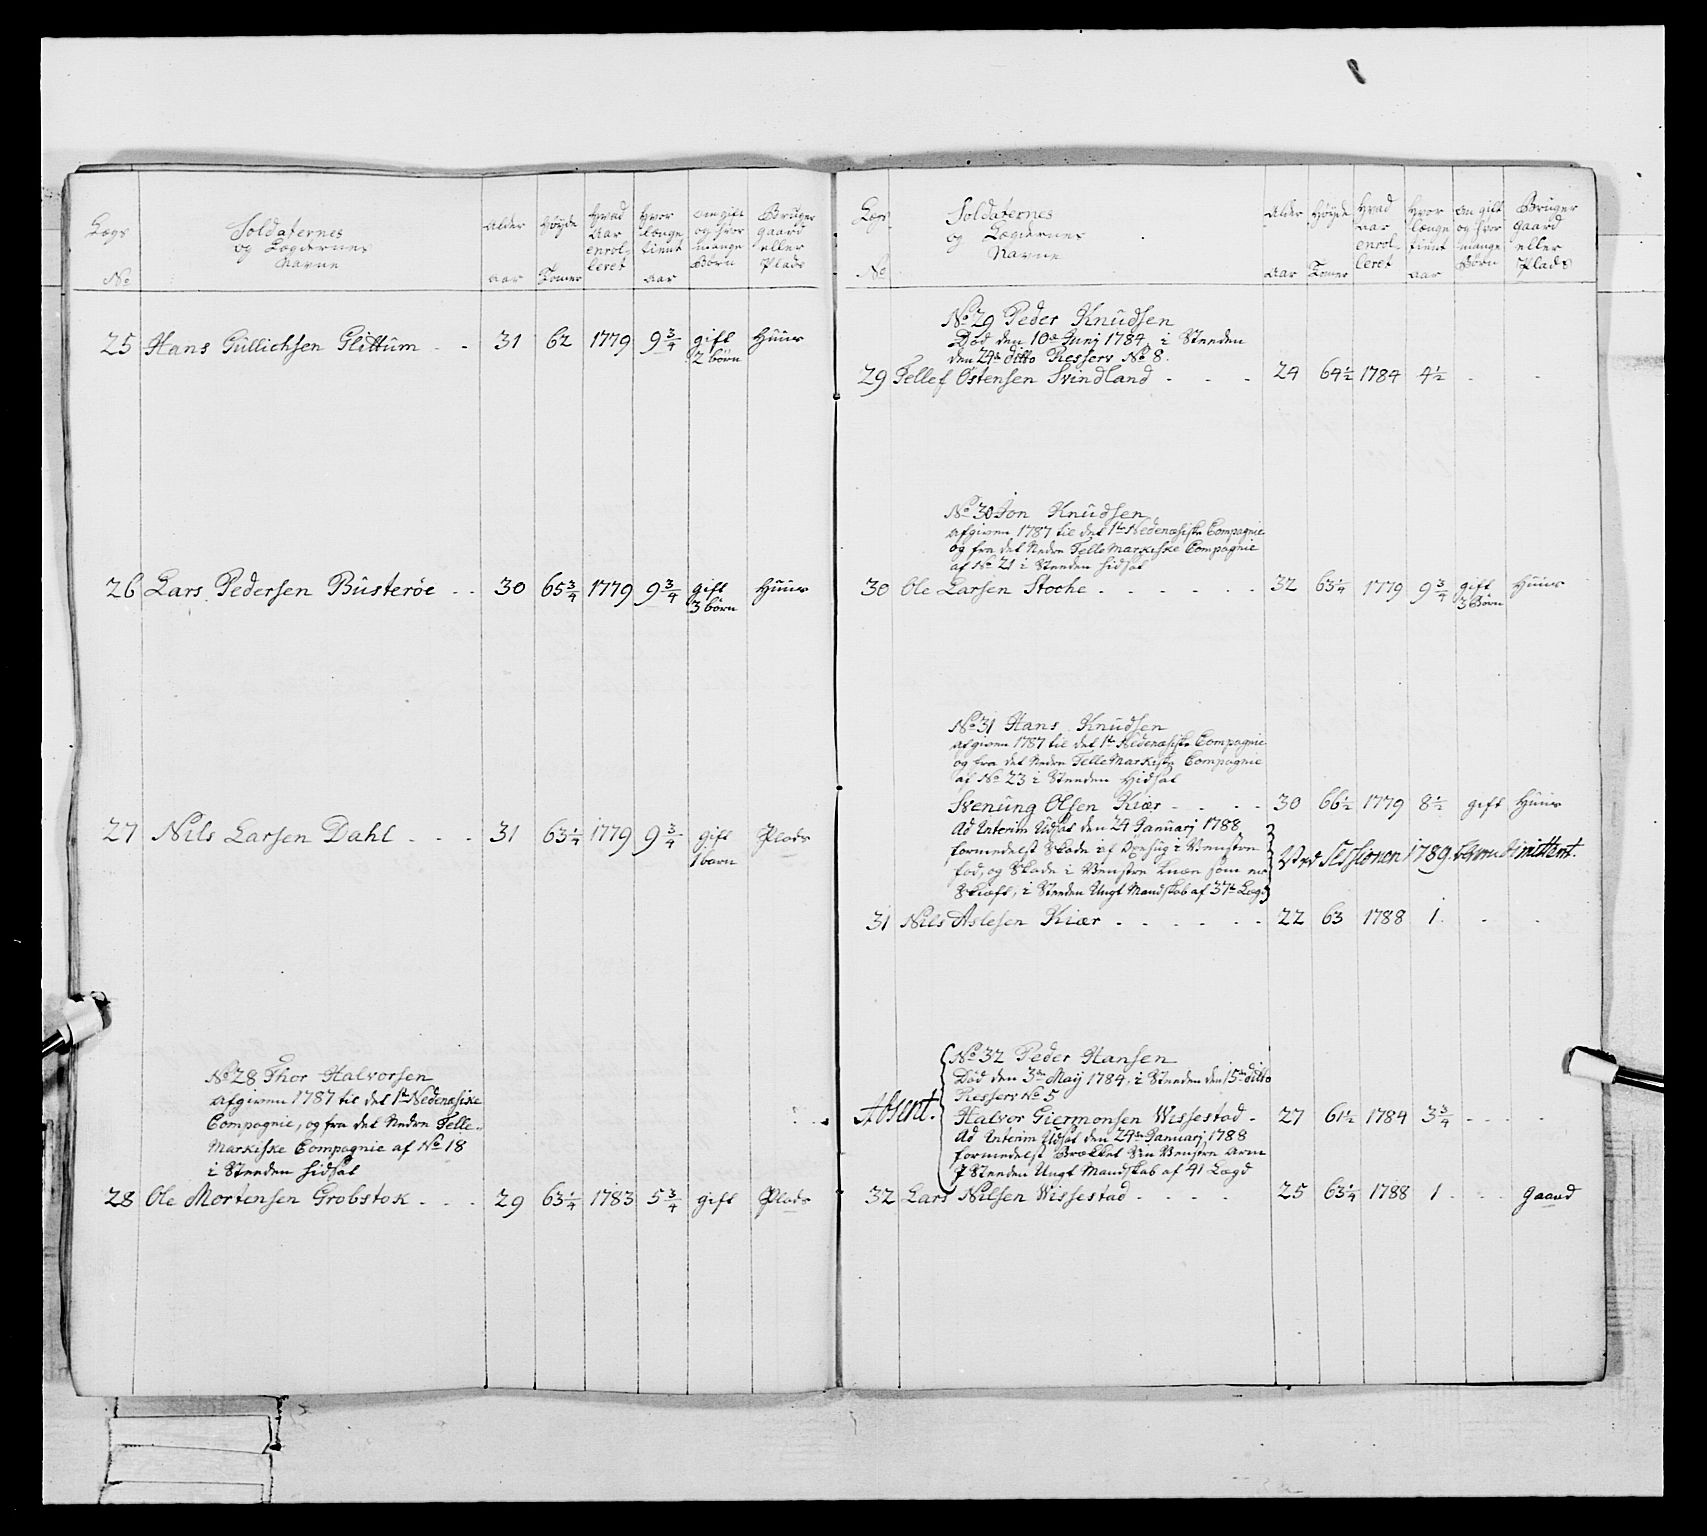 Lægs
No
Soldaternes
og Lægdernes
Navne
Alder
Aar
Høyde
Tomer
Hvad
Aar
enrol-
leret
Hvor
længe
tient
Aar
Om gift
og hvor
mange
Børn
Bruger
gaard
eller
Plads
25 Hans Gullichsen Glittum - - 31 62 1779 9 3/4 gift Huus
2 børn
26 Lars Pedersen Busterøe - - 30 65 3/4 1779 9 3/4 gift Huus
3 børn
27 Nils Larsen Dahl - - - 31 63 1/4 1779 9 3/4 gift Plads
1 barn
No 28 Thor Halvorsen
afgiven 1787 til det 1te Nedenæsiske
Compagnie, og fra det Nedre Telle-
Markiske Compagnie af No 18
i Steeden hidsat
28 Ole Mortensen Grobstok - - - 29 63 1/4 1783 5 3/4 gift Plads
Lægs
No
Soldaternes
og Lægdernes
Navne
Alder
Aar
Høyde
Tomer
Hvad
Aar
enrol-
leret
Hvor
længe
tient
Aar
Om gift
og hvor
mange
Børn
Bruger
gaard
eller
Plads
No 29 Peder Knudsen
Død den 10de Junj 1784, i Steeden
den 24de ditto Resserv No 8.
29 Tellef Østensen Svindland - - - 24 64 1/2 1784 4 1/2 - -
No 30 Jon Knudsen
afgiven 1787 til det 1te Nedenæsiske Compagnie
og fra det Nedre Telle Markiske Compagnie
af No 21 i Steeden hidsat
30 Ole Larsen Stoche - - - - - - 32 63 1/4 1779 9 3/4 gift Huus
3 Børn
No 31 Hans Knudsen
afgiven 1787 til det 1te Nedenæsiske Compagnie
og fra det Nedre Telle Markiske Compagnie
af No 23 i Steeden Hidsat
Svenung Olsen Kiær - - - - 30 66 1/2 1779 8 1/2 gift Huus
Ad Interim Udsat den 24 Januarj 1788
formedelst Skade af Øxehug i Venstre
fod, og Skade i Venstre Knæe som er
Skieft, i Steeden Ungt Mandskab af 37te Lægd
Ved Sessionen 1789
31 Nils Aslesen Kiær - - - - - - 22 63 1788 1 - - -
Absent.
No 32 Peder Hansen
Død den 3de Maij 1784, i Steeden den 15de ditto
Resserv No 5
Halvor Giermonsen Wissestad - 27 61 1/2 1784 3 3/4 - - - -
Ad Interim Udsat den 24de Januarj 1788
formedelst Brækket Sin Venstre Arm
J Steeden Ungt Mandskab af 41 Lægd
32 Lars Nilsen Wissestad - - - - 25 63 1/4 1788 1 - - - gaard